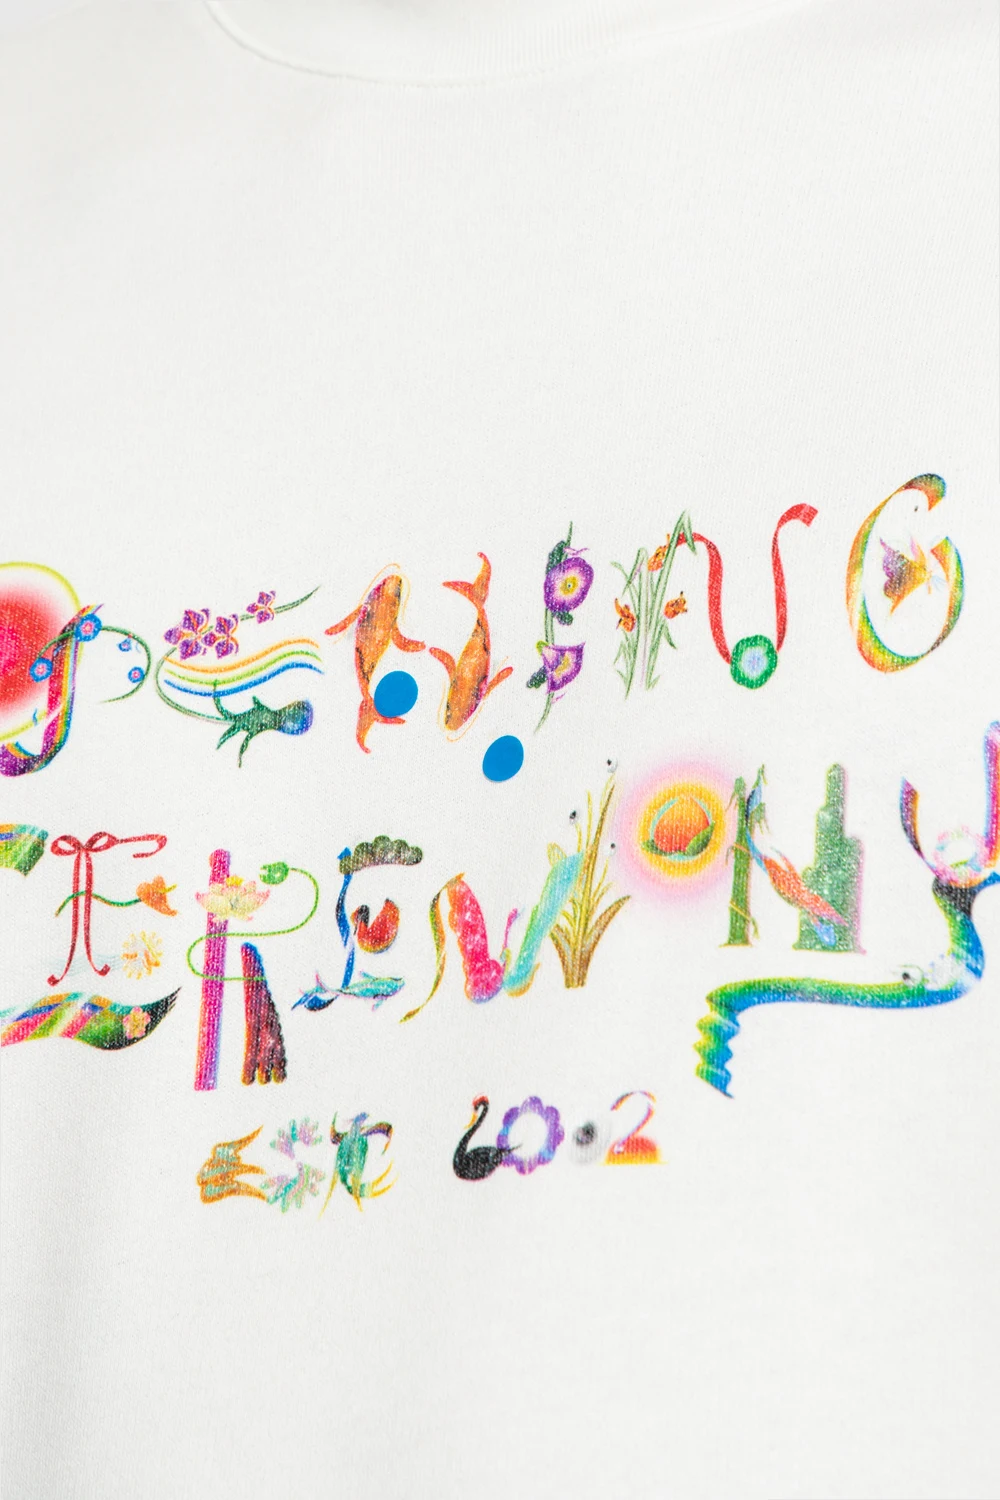 OPENING
CEREMONY
EST 2002